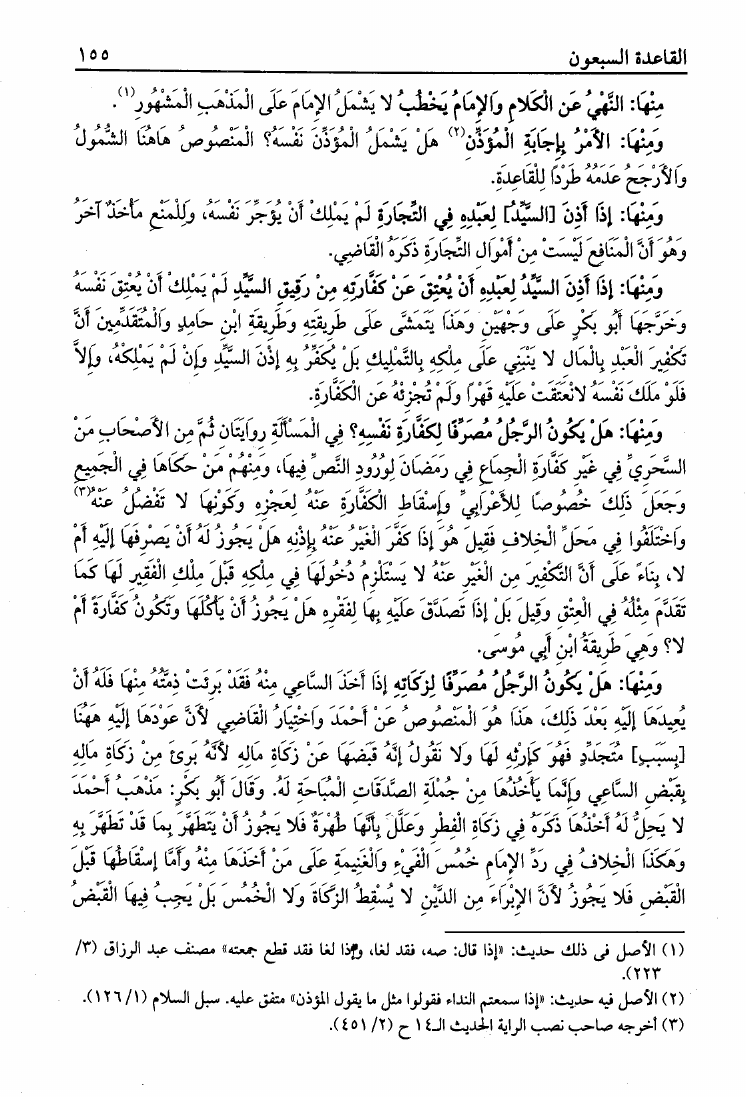 القاعدة السبعون ١٥٥
مِنْهَا: النَّهْيُ عَنِ الْكَلَامِ وَالإِمَامُ يَخْطُبُ لَا يَشْمَلُ الإِمَامَ عَلَى الْمَذْهَبِ الْمَشْهُورِ(١).
وَمِنْهَا: الأَمْرُ بِإِجَابَةِ الْمُؤَذِّنِ(٢) هَلْ يَشْمَلُ الْمُؤَذِّنَ نَفْسَهُ؟ الْمَنْصُوصُ هَاهُنَا الشُّمُولُ
وَالأَرْجَحُ عَدَمُهُ طَرْدًا لِلْقَاعِدَةِ.
وَمِنْهَا: إِذَا أَذِنَ [السَّيِّدُ] لِعَبْدِهِ فِي التِّجَارَةِ لَمْ يَمْلِكْ أَنْ يُؤَجِّرَ نَفْسَهُ، وَلِلْمَنْعِ مَأْخَذٌ آخَرُ
وَهُوَ أَنَّ الْمَنَافِعَ لَيْسَتْ مِنْ أَمْوَالِ التِّجَارَةِ ذَكَرَهُ الْقَاضِي.
وَمِنْهَا: إِذَا أَذِنَ السَّيِّدُ لِعَبْدِهِ أَنْ يُعْتِقَ عَنْ كَفَّارَتِهِ مِنْ رَقِيقِ السَّيِّدِ لَمْ يَمْلِكْ أَنْ يُعْتِقَ نَفْسَهُ
وَخَرَّجَهَا أَبُو بَكْرٍ عَلَى وَجْهَيْنِ وَهَذَا يَتَمَشَّى عَلَى طَرِيقَتِهِ وَطَرِيقَةِ ابْنِ حَامِدٍ وَالْمُتَقَدِّمِينَ أَنَّ
تَكْفِيرَ الْعَبْدِ بِالْمَالِ لَا يَنْبَنِي عَلَى مِلْكِهِ بِالتَّمْلِيكِ بَلْ يُكَفِّرُ بِهِ إِذْنَ السَّيِّدِ وَإِنْ لَمْ يَمْلِكْهُ، وَإِلاَّ
فَلَوْ مَلَكَ نَفْسَهُ لَانْعَتَقَتْ عَلَيْهِ قَهْرًا وَلَمْ تُجْزِئْهُ عَنِ الْكَفَّارَةِ.
وَمِنْهَا: هَلْ يَكُونُ الرَّجُلُ مَصْرَفًا لِكَفَّارَةِ نَفْسِهِ؟ فِي الْمَسْأَلَةِ رِوَايَتَانِ ثُمَّ مِنِ الأَصْحَابِ مَنْ
السَّحَرِيِّ فِي غَيْرِ كَفَّارَةِ الْجِمَاعِ فِي رَمَضَانَ لِوُرُودِ النَّصِّ فِيهَا، وَمِنْهُمْ مَنْ حَكَاهَا فِي الْجَمِيعِ
وَجَعَلَ ذَلِكَ خُصُوصًا لِلأَعْرَابِيِّ وَإِسْقَاطِ الْكَفَّارَةِ عَنْهُ لِعَجْزِهِ وَكَوْنِهَا لَا تَفْضُلُ عَنْهُ(٣)
وَاخْتَلَفُوا فِي مَحَلِّ الْخِلَافِ فَقِيلَ هُوَ إِذَا كَفَّرَ الْغَيْرُ عَنْهُ بِإِذْنِهِ هَلْ يَجُوزُ لَهُ أَنْ يَصْرِفَهَا إِلَيْهِ أَمْ
لَا، بِنَاءً عَلَى أَنَّ التَّكْفِيرَ مِنِ الْغَيْرِ عَنْهُ لَا يَسْتَلْزِمُ دُخُولَهَا فِي مِلْكِهِ قَبْلَ مِلْكِ الْفَقِيرِ لَهَا كَمَا
تَقَدَّمَ مِثْلُهُ فِي الْعِتْقِ وَقِيلَ بَلْ إِذَا تَصَدَّقَ عَلَيْهِ بِهَا لِفَقْرِهِ هَلْ يَجُوزُ أَنْ يَأْكُلَهَا وَتَكُونُ كَفَّارَةً أَمْ
لَا؟ وَهِيَ طَرِيقَةُ ابْنِ أَبِي مُوسَى.
وَمِنْهَا: هَلْ يَكُونُ الرَّجُلُ مَصْرَفًا لِزَكَاتِهِ إِذَا أَخَذَ السَّاعِي مِنْهُ فَقَدْ بَرِئَتْ ذِمَّتُهُ مِنْهَا فَلَهُ أَنْ
يُعِيدَهَا إِلَيْهِ بَعْدَ ذَلِكَ، هَذَا هُوَ الْمَنْصُوصُ عَنْ أَحْمَدَ وَاخْتِيَارُ الْقَاضِي لأَنَّ عَوْدَهَا إِلَيْهِ هَهُنَا
[بِسَبَبٍ] مُتَجَدِّدٍ فَهُوَ كَإِرْثِهِ لَهَا وَلَا نَقُولُ إِنَّهُ قَبَضَهَا عَنْ زَكَاةِ مَالِهِ لأَنَّهُ بَرِئَ مِنْ زَكَاةِ مَالِهِ
بِقَبْضِ السَّاعِي وَإِنَّمَا يَأْخُذُهَا مِنْ جُمْلَةِ الصَّدَقَاتِ الْمُبَاحَةِ لَهُ. وَقَالَ أَبُو بَكْرٍ: مَذْهَبُ أَحْمَدَ
لَا يَحِلُّ لَهُ أَخْذُهَا ذَكَرَهُ فِي زَكَاةِ الْفِطْرِ وَعَلَّلَ بِأَنَّهَا طُهْرَةٌ فَلَا يَجُوزُ أَنْ يَتَطَهَّرَ بِمَا قَدْ تَطَهَّرَ بِهِ
وَهَكَذَا الْخِلَافُ فِي رَدِّ الإِمَامِ خُمُسَ الْفَيْءِ وَالْغَنِيمَةِ عَلَى مَنْ أَخَذَهَا مِنْهُ وَأَمَّا إِسْقَاطُهَا قَبْلَ
الْقَبْضِ فَلَا يَجُوزُ لأَنَّ الإِبْرَاءَ مِنِ الدَّيْنِ لَا يُسْقِطُ الزَّكَاةَ وَلَا الْخُمُسَ بَلْ يَجِبُ فِيهَا الْقَبْضُ
(١) الأصل فى ذلك حديث: «إذا قال: صه، فقد لغا، وإذا لغا فقد قطع جمعته» مصنف عبد الرزاق (٣/
٢٢٣).
(٢) الأصل فيه حديث: «إذا سمعتم النداء فقولوا مثل ما يقول المؤذن» متفق عليه. سبل السلام (١/ ١٢٦).
(٣) أخرجه صاحب نصب الراية الحديث الـ١٤ ح (٢/ ٤٥١).